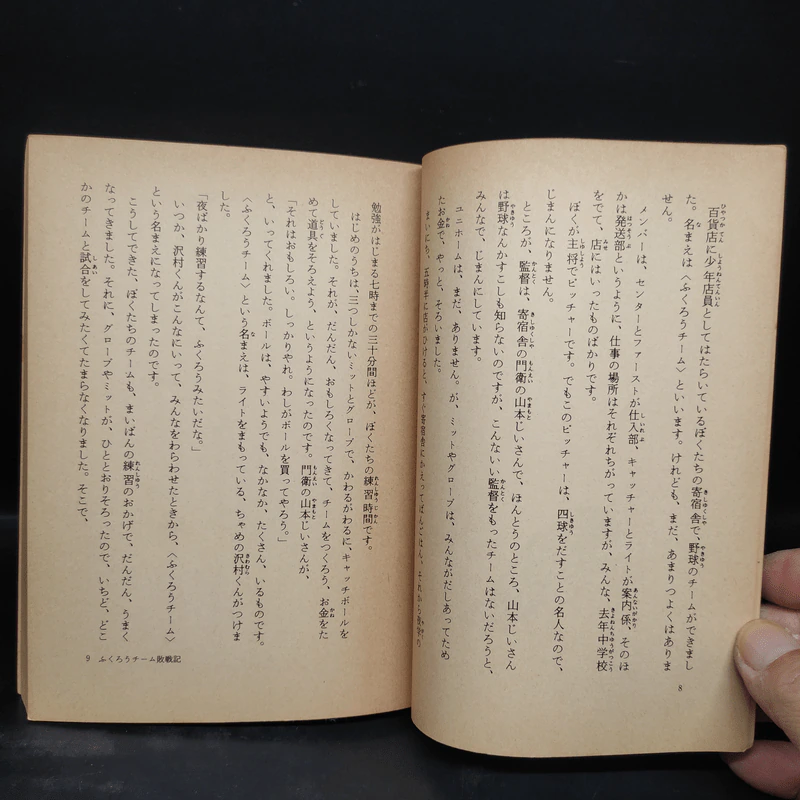 百貨店に少年店員としてはたらいているぼくたちの寄宿舎で、野球のチームができまし
た。名まえは〈ふくろうチーム〉といいます。けれども、まだ、あまりつよくはありま
せん。
メンバーは、センターとファーストが仕入部、キャッチャーとライトが案内係、そのほ
かは発送部というように、仕事の場所はそれぞれちがっていますが、みんな、去年中学校
をでて、店にはいったものばかりです。
ぼくが主将でピッチャーです。でもこのピッチャーは、四球をだすことの名人なので、
じまんになりません。
ところが、監督は、寄宿舎の門衛の山本じいさんで、ほんとうのところ、山本じいさん
は野球なんかすこしも知らないのですが、こんないい監督をもったチームはないだろうと、
みんなで、じまんにしています。
ユニホームは、まだ、ありません。が、ミットやグローブは、みんながだしあってため
たお金で、やっと、そろいました。
まいにち、五時半に店がひけると、すぐ寄宿舎にかえってばんごはん、それから
8
勉強がはじまる七時までの三十分間ほどが、ぼくたちの練習時間です。
はじめのうちは、三つしかないミットとグローブで、かわるがわるに、キャッチボールを
していました。それが、だんだん、おもしろくなってきて、チームをつくろう、お金をた
めて道具をそろえよう、というようになったのです。門衛の山本じいさんが、
「それはおもしろい。しっかりやれ。わしがボールを買ってやろう。」
と、いってくれました。ボールは、やすいようでも、なかなか、たくさん、いるものです。
〈ふくろうチーム〉という名まえは、ライトをまもっている、ちゃめの沢村くんがつけま
した。
「夜ばかり練習するなんて、ふくろうみたいだな。」
いつか、沢村くんがこんなにいって、みんなをわらわせたときから、〈ふくろうチーム〉
という名まえになってしまったのです。
こうしてできた、ぼくたちのチームも、まいばんの練習のおかげで、だんだん、うまく
なってきました。それに、グローブやミットが、ひととおりそろったので、いちど、どこ
かのチームと試合をしてみたくてたまらなくなりました。そこで、
9 ふくろうチーム敗戦記